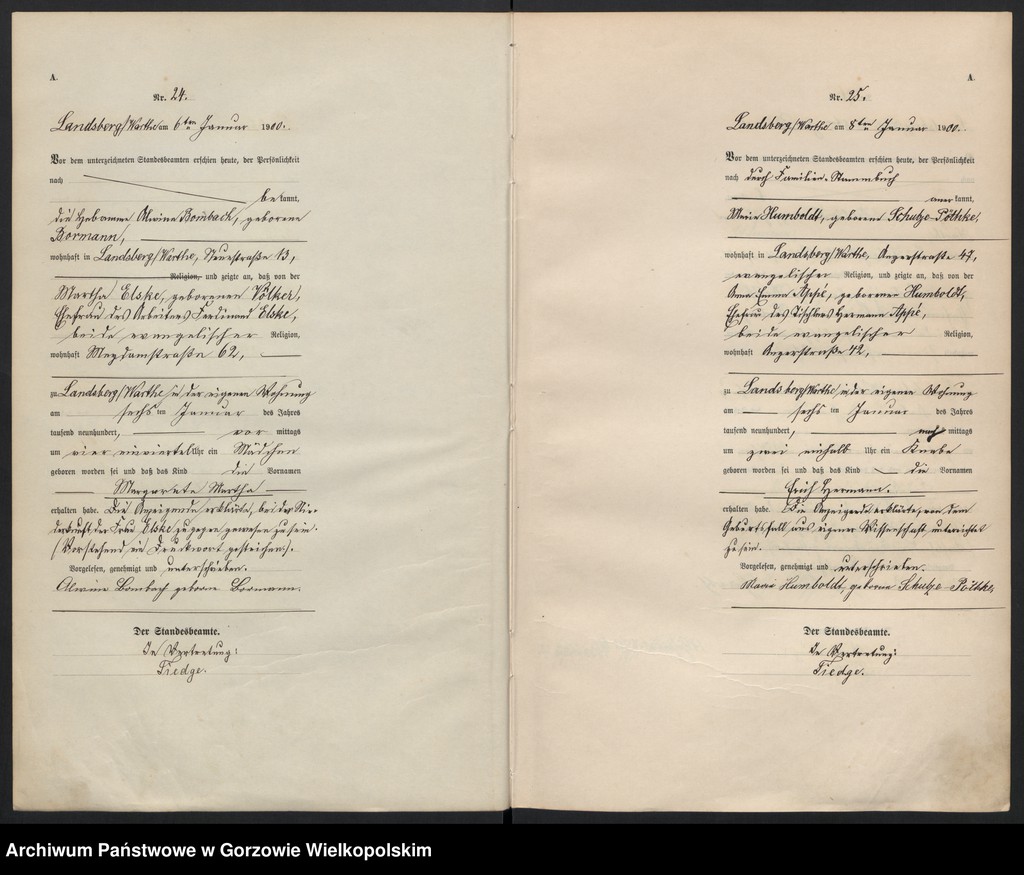 A.
Nr. 24.
Landsberg/Warthe am 6ten Januar 1900.
Vor dem unterzeichneten Standesbeamten erschien heute, der Persönlichkeit
nach
bekannt,
die Hebamme Alwine Bombach, geborene
Bormann,
wohnhaft in Landsberg/Warthe, Straße 13,
Religion, und zeigte an, daß von der
Martha Elske, geborenen Völker,
Ehefrau des Arbeiters Ferdinand Elske,
beide evangelischer Religion,
wohnhaft Meydamstraße 62,
zu Landsberg/Warthe in der eigenen Wohnung
am sechsten Januar des Jahres
tausend neunhundert, vor mittags
um vier einviertel Uhr ein Mädchen
geboren worden sei und daß das Kind die Vornamen
Margarete Martha
erhalten habe. Die Anzeigende erklärte, bei der Nie-
derkunft der Frau Elske zugegen gewesen zu sein.
(Vorstehend ein Druckwort gestrichen).
Vorgelesen, genehmigt und unterschrieben.
Alwine Bombach geborne Bormann.
Der Standesbeamte.
In Vertretung:
Tiedge.
A.
Nr. 25.
Landsberg/Warthe am 8ten Januar 1900.
Vor dem unterzeichneten Standesbeamten erschien heute, der Persönlichkeit
nach durch Familien-Stammbuch
anerkannt,
Marie Humboldt, geborene Schulze-Pöthke,
wohnhaft in Landsberg/Warthe, Angerstraße 47,
evangelischer Religion, und zeigte an, daß von der
Anna Emma Appé, geborenen Humboldt,
Ehefrau des Tischlers Hermann Appé,
beide evangelischer Religion,
wohnhaft Angerstraße 42,
zu Landsberg/Warthe in der eigenen Wohnung
am sechsten Januar des Jahres
tausend neunhundert, nach mittags
um zwei einhalb Uhr ein Knabe
geboren worden sei und daß das Kind die Vornamen
Erich Hermann.
erhalten habe. Die Anzeigende erklärte, von dem
Geburtsfall aus eigener Wissenschaft unterrichtet
zu sein.
Vorgelesen, genehmigt und unterschrieben.
Marie Humboldt, geborne Schulze-Pöthke,
Der Standesbeamte.
In Vertretung:
Tiedge.
Archiwum Państwowe w Gorzowie Wielkopolskim